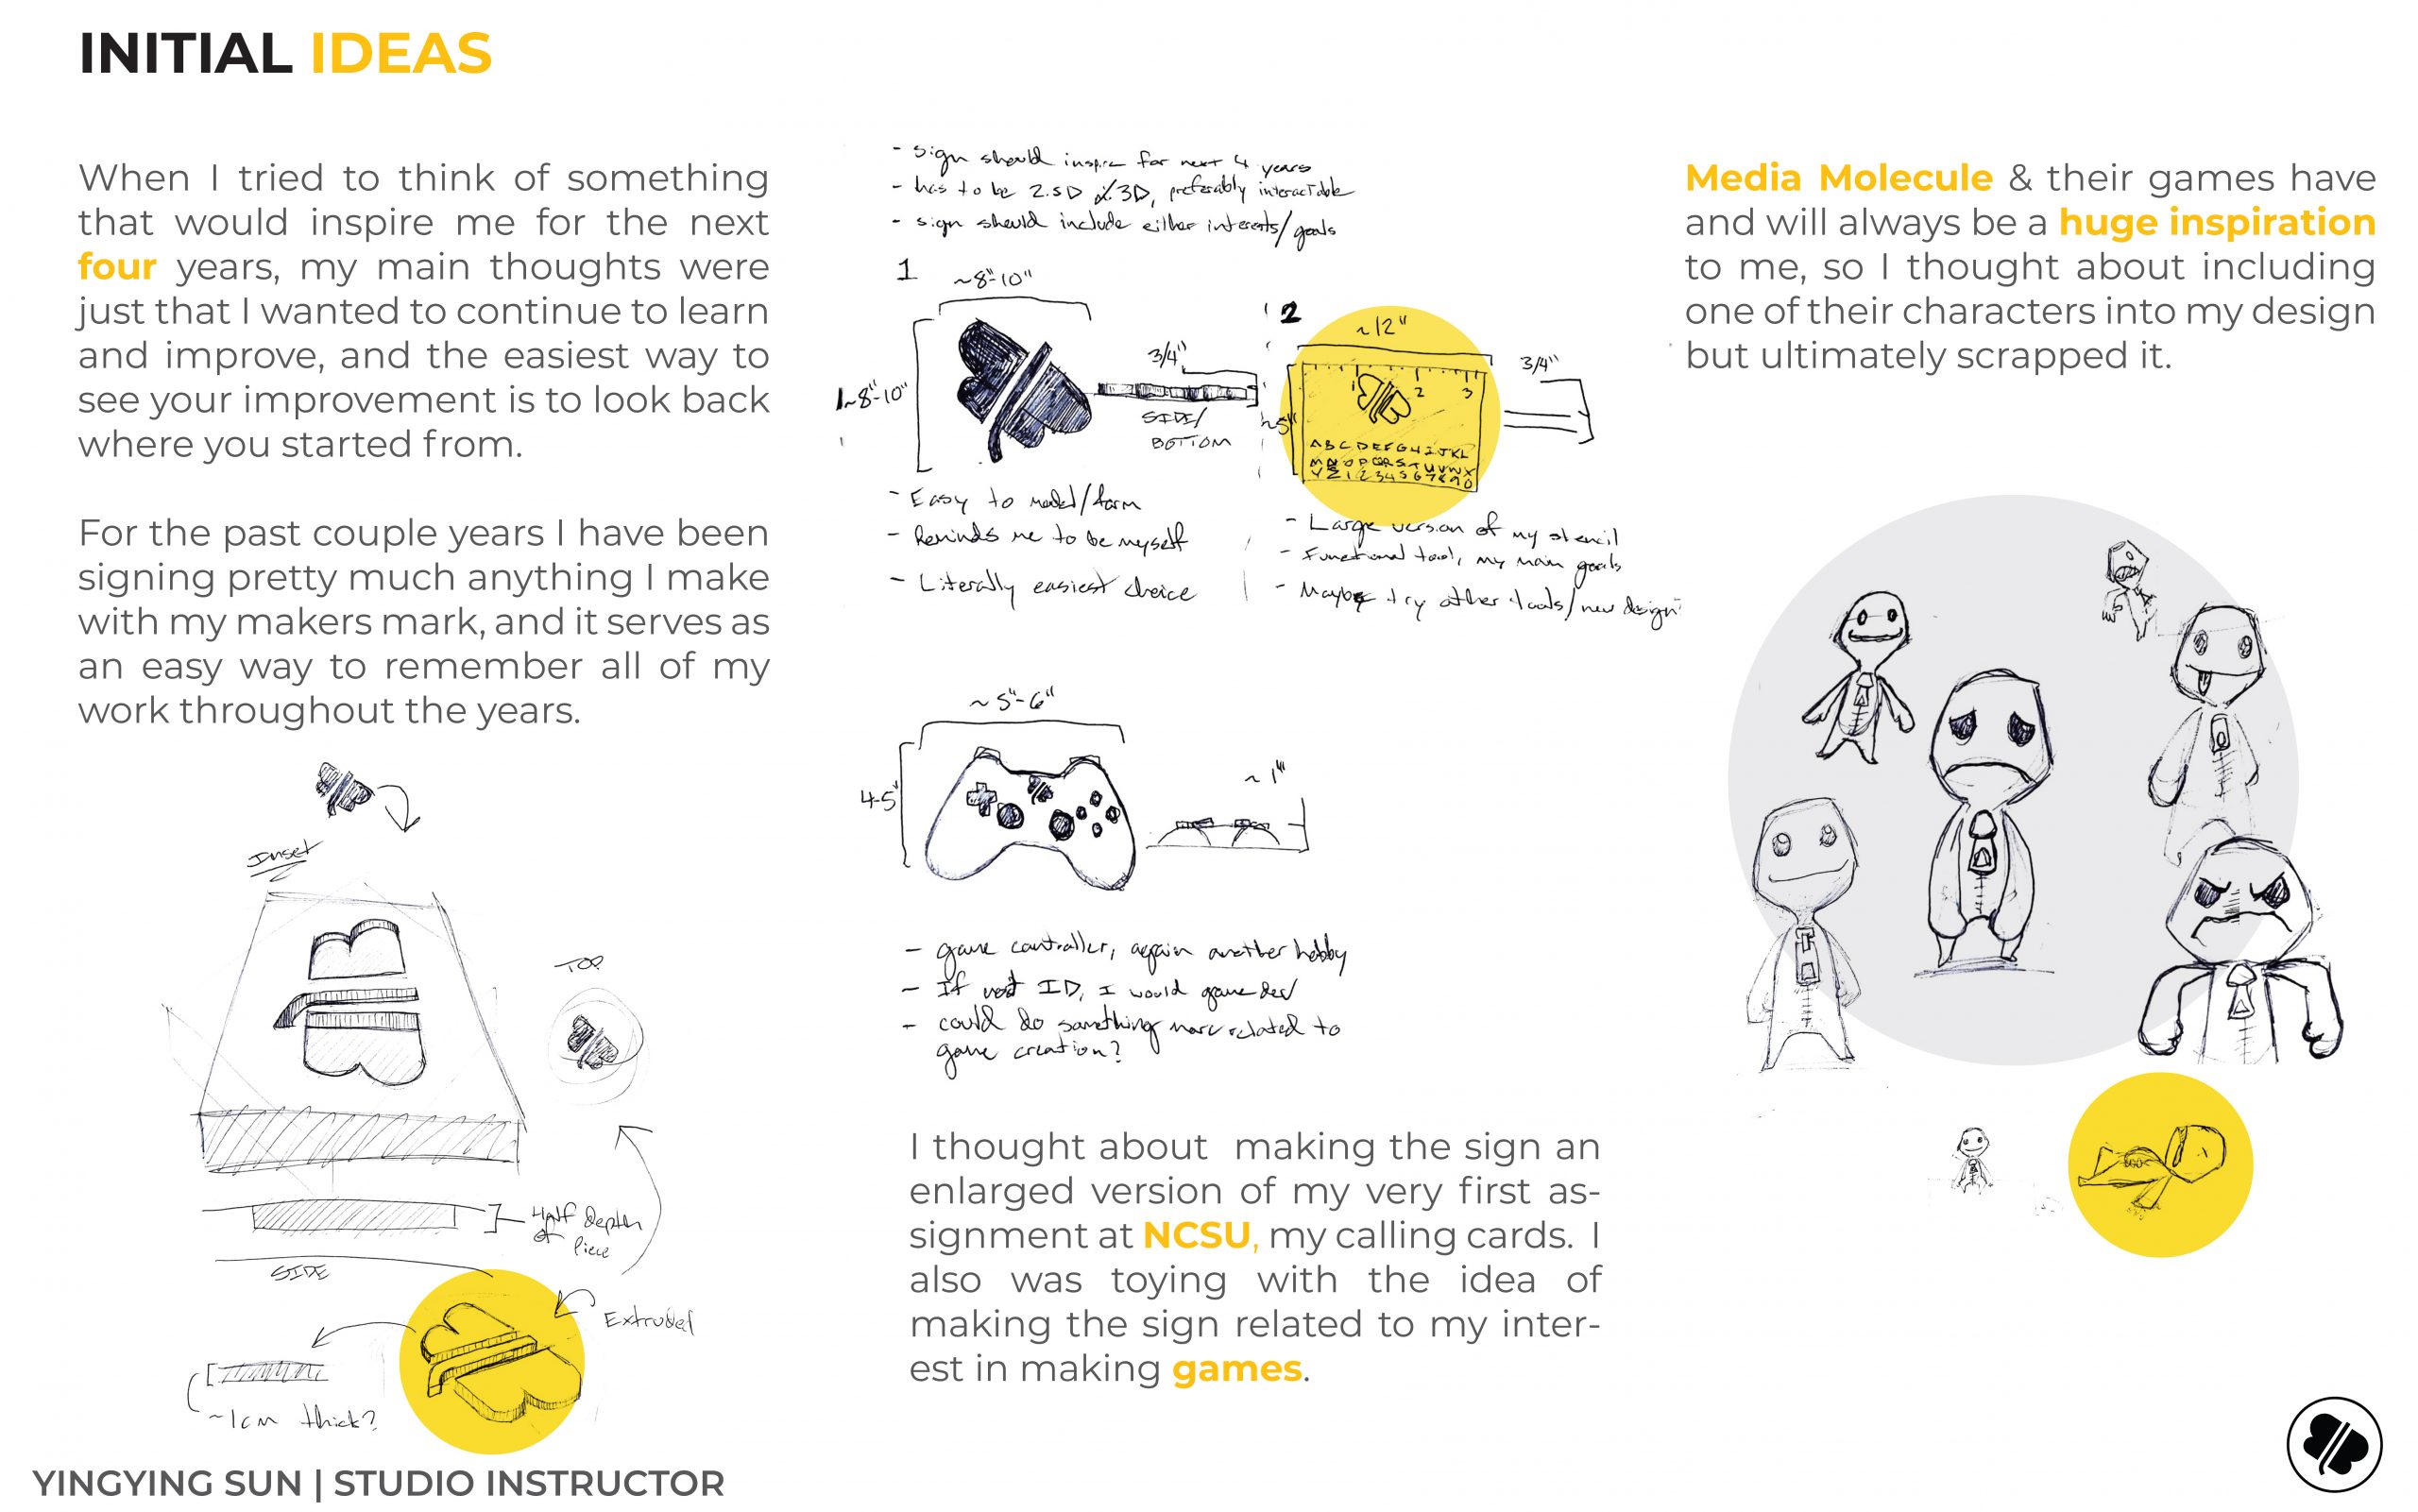 INITIAL IDEAS
When I tried to think of something
that would inspire me for the next
four years, my main thoughts were
just that I wanted to continue to learn
and improve, and the easiest way to
see your improvement is to look back
where you started from.
For the past couple years I have been
signing pretty much anything I make
with my makers mark, and it serves as
an easy way to remember all of my
work throughout the years.
Inset
TOP
Half depth
of piece
SIDE
Extruded
~1cm thick?
- sign should inspire for next 4 years
- has to be 2.5D / 3D, preferably interactable
- sign should include either interests/goals
1
~8"-10"
~8"-10"
3/4"
SIDE/
BOTTOM
- Easy to model/form
- Reminds me to be myself
- Literally easiest choice
2
~12"
~5"
3/4"
1 2 3
ABCDEFGHIJKL
MNOPQRSTUVWX
YZ1234567890
- Large version of my stencil
- Functional tool, my main goals
- Maybe try other tools/new design
~5"-6"
4-5"
~1"
- game controller, again another hobby
- If not ID, I would game dev
- could do something more related to
game creation?
I thought about making the sign an
enlarged version of my very first as-
signment at NCSU, my calling cards. I
also was toying with the idea of
making the sign related to my inter-
est in making games.
Media Molecule & their games have
and will always be a huge inspiration
to me, so I thought about including
one of their characters into my design
but ultimately scrapped it.
YINGYING SUN | STUDIO INSTRUCTOR